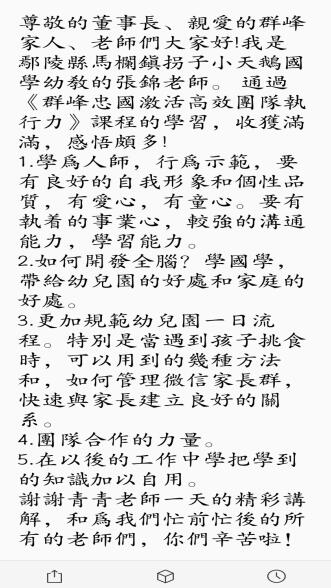 尊敬的董事長、親愛的群峰
家人、老師們大家好!我是
鄢陵縣馬欄鎮拐子小天鵝國
學幼教的張錦老師。通過
《群峰忠國激活高效團隊執
行力》課程的學習，收獲滿
滿，感悟頗多!
1.學爲人師，行爲示範，要
有良好的自我形象和個性品
質，有愛心，有童心。要有
執着的事業心，較強的溝通
能力，學習能力。
2.如何開發全腦？學國學，
帶給幼兒園的好處和家庭的
好處。
3.更加規範幼兒園一日流
程。特別是當遇到孩子挑食
時，可以用到的幾種方法
和，如何管理微信家長群，
快速與家長建立良好的關
系。
4.團隊合作的力量。
5.在以後的工作中學把學到
的知識加以自用。
謝謝青青老師一天的精彩講
解，和爲我們忙前忙後的所
有的老師們，你們辛苦啦!